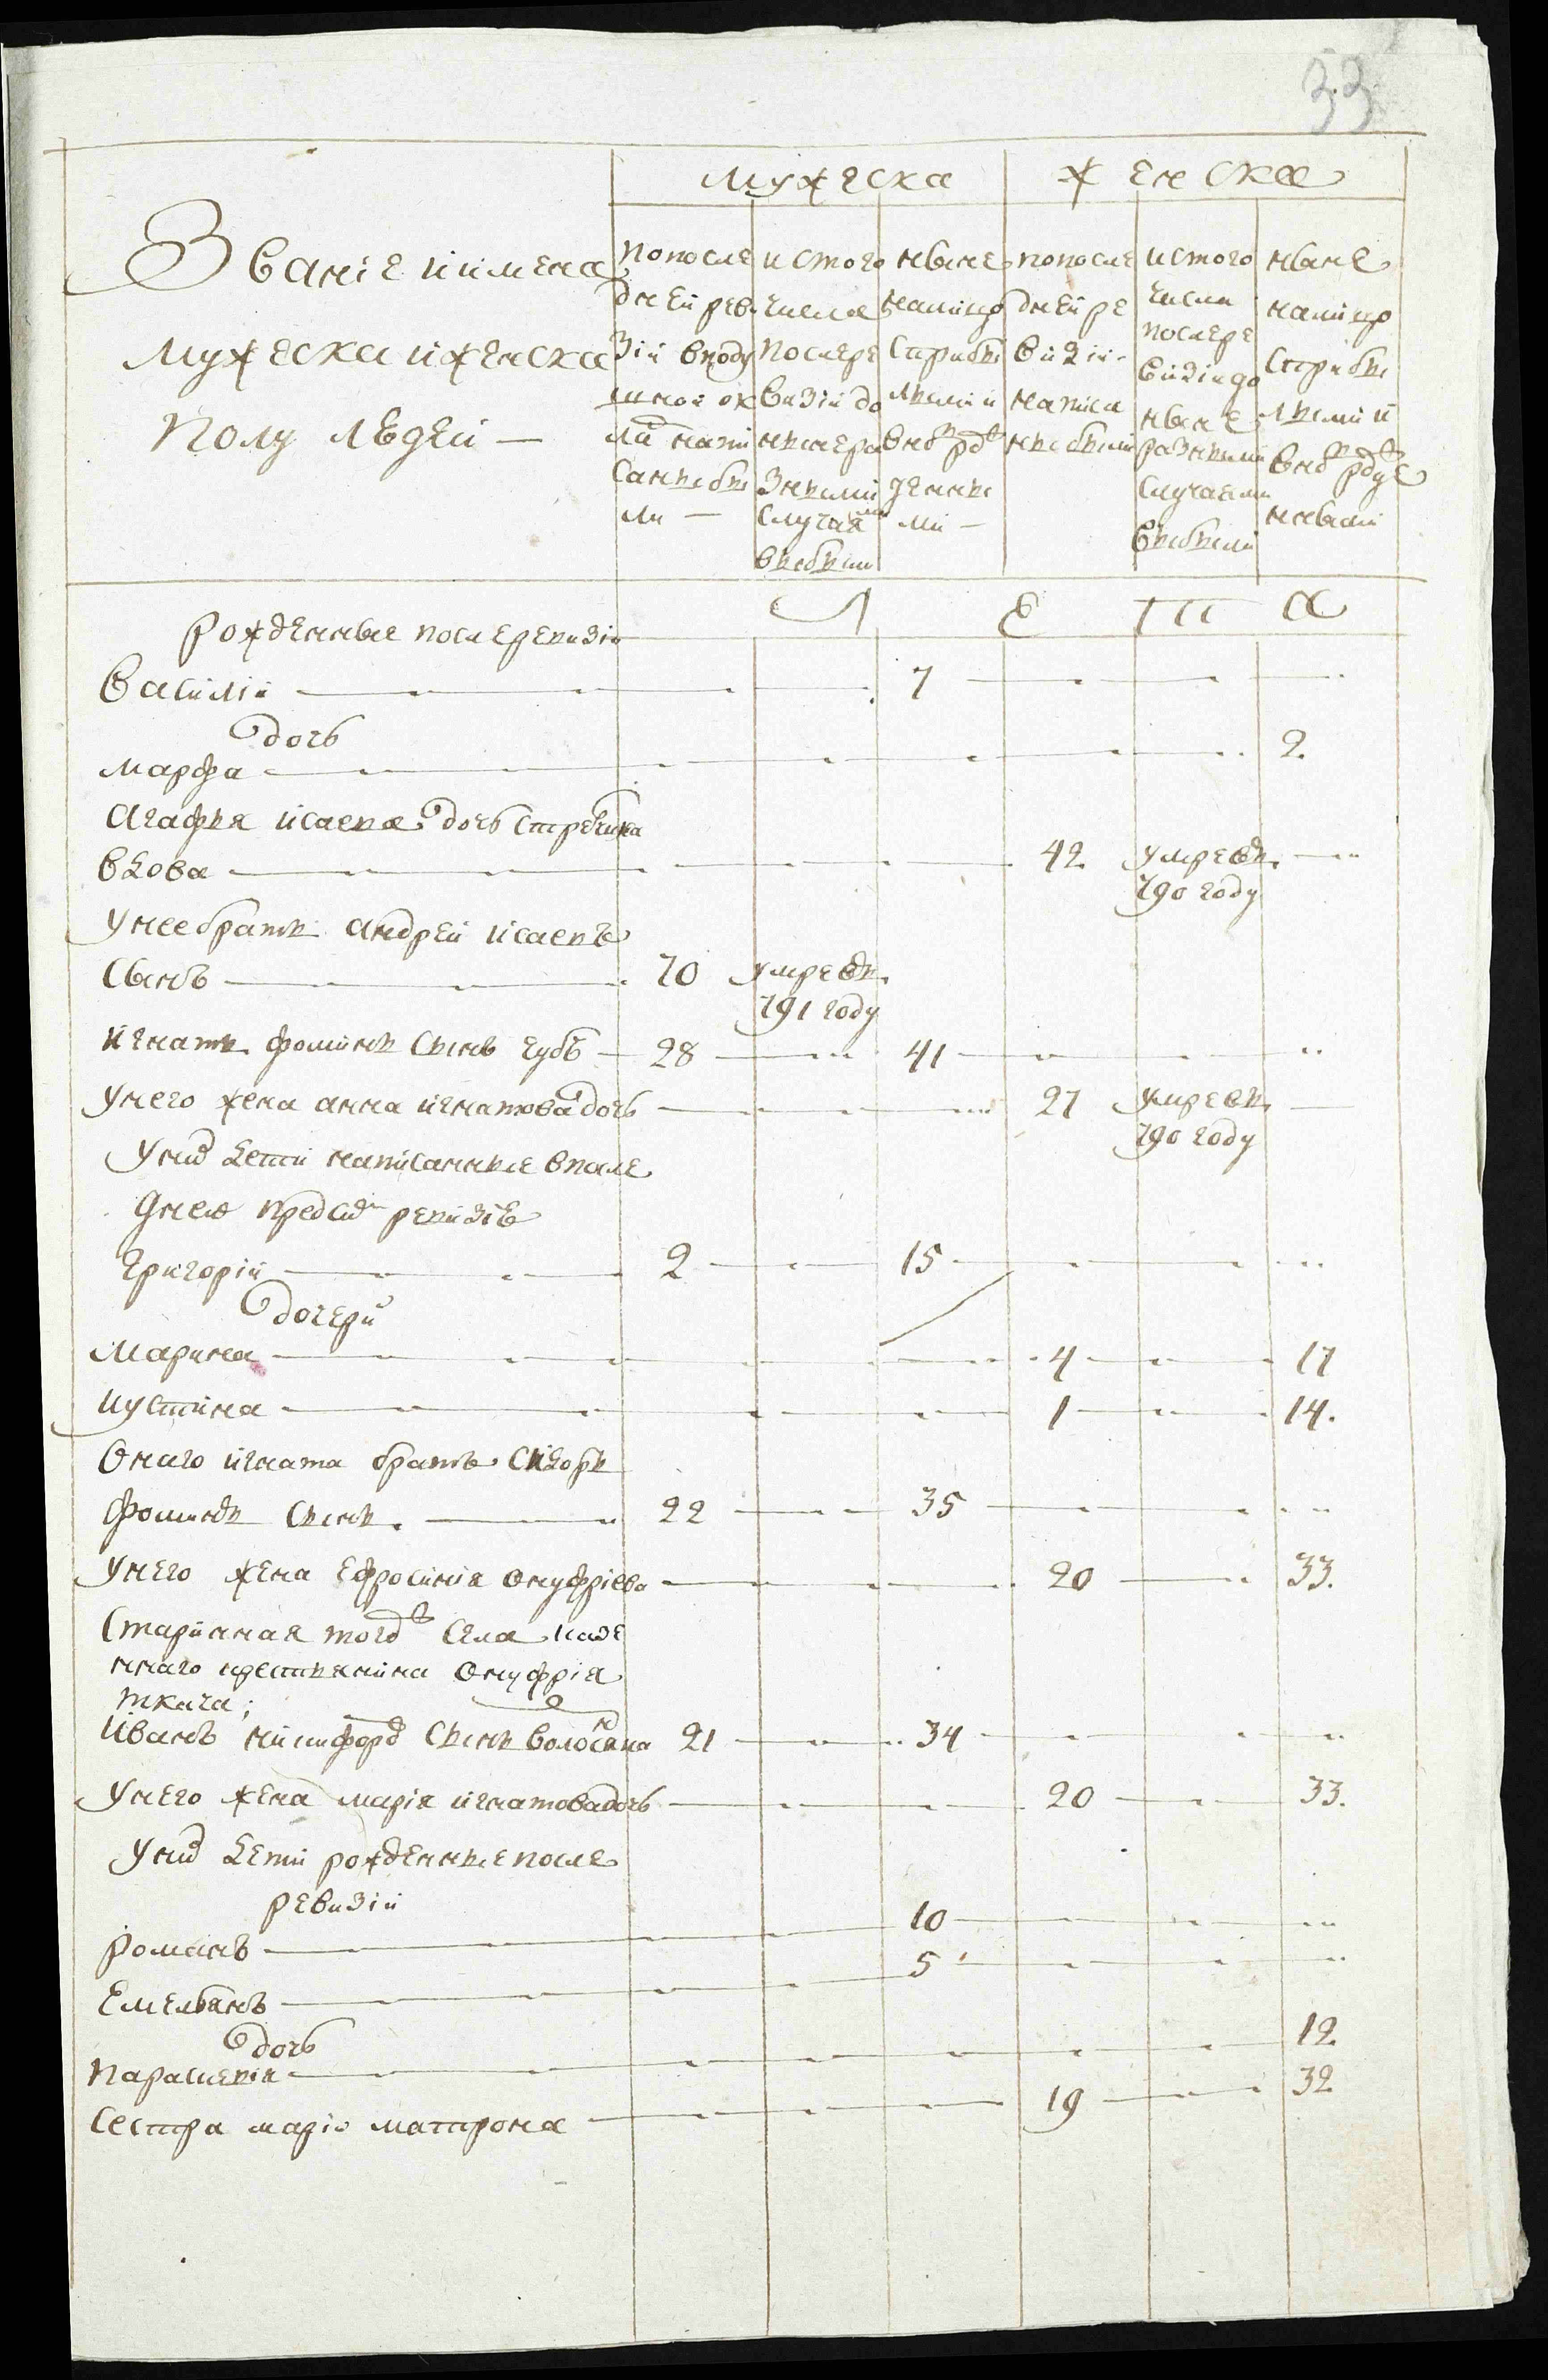 33
мужеска женска
Званіе и имена
мужеска и женска
полу людей —
по после
дней реви
зіи в поду
шной ок
ла напи
саны бы
ли —
ис того
числа
после ре
визіи до
ныне ра
зными
случаями
выбыли
ныне
налицо
с прибы
лыми и
вновь рож
денны
ми —
по после
дней ре
визіи
написа
ны были
ис того
числа
после ре
визіи до
ныне
разными
случаями
выбыли
ныне
налицо
с прибы
лыми и
вновь рожде
нными
рожденные после ревизіи Л е т а
Василій 7
дочь
Марфа 2.
Агафья Исаева дочь
вдова 42 умре въ
790 году
у нее братъ Андрей Исаевъ
сынъ 70 умре въ
791 году
Игнатъ Фоминъ сынъ Губъ 28 41
у него жена Анна Игнатова дочь 27 умре въ
790 году
у них дети написанные в после
днею пред сим ревизіею
Григорій 2 15
дочери
Марина 4 17
Иустина 1 14.
Онаго Игната братъ Сидоръ
Фоминъ сынъ. 22 35
у него жена Ефросинія Онуфріева 20 33.
старинная того ж села казе
ннаго крестьянина Онуфрія
ткача;
Иванъ Никифоров сынъ 21 34
у него жена Марія Игнатова дочь 20 33.
у них дети рожденные после
ревизіи
Романъ 10
Емельянъ 5
дочь
Параскевія 12
сестра Маріи Матрона 19 32